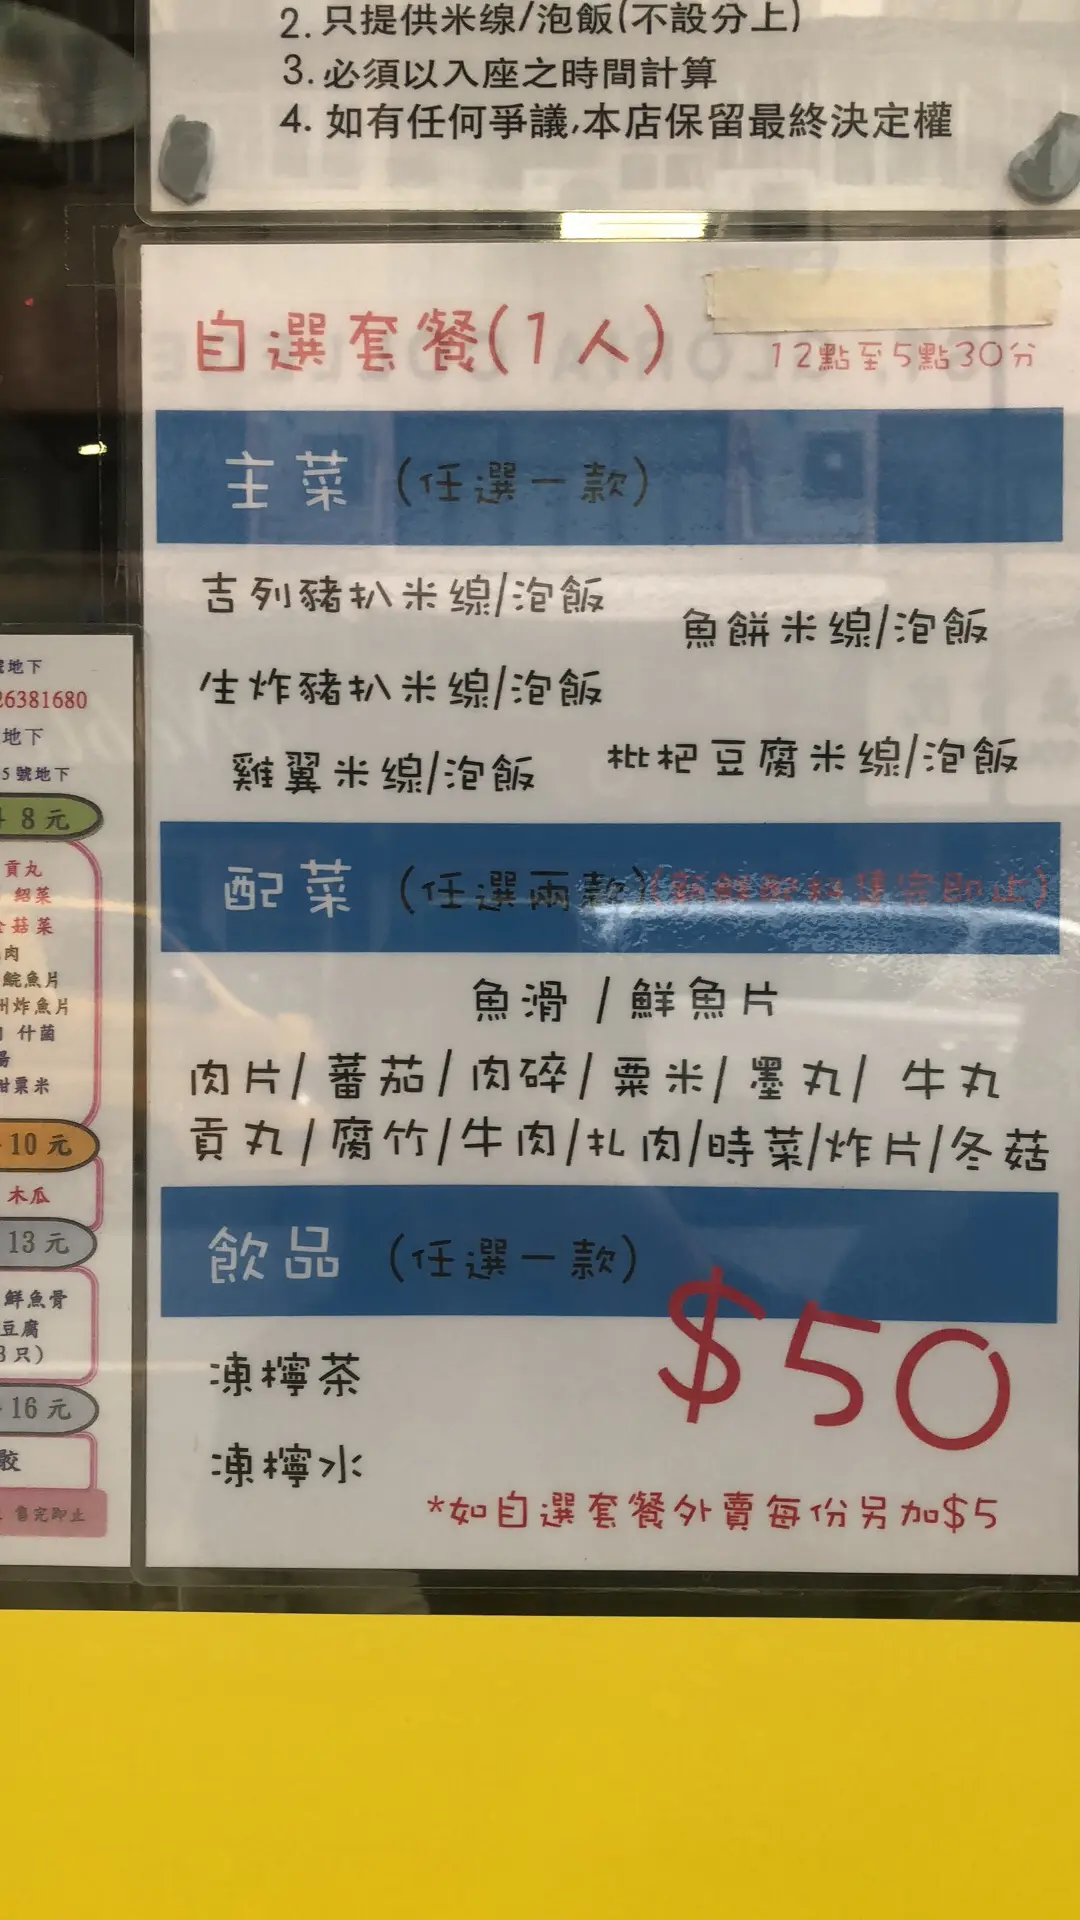 2. 只提供米线/泡飯(不設分上)
3. 必須以入座之時間計算
4. 如有任何爭議,本店保留最終決定權
自選套餐(1人)
12點至5點30分
主菜 (任選一款)
吉列豬扒米線/泡飯
魚餅米線/泡飯
生炸豬扒米線/泡飯
雞翼米線/泡飯
枇杷豆腐米線/泡飯
配菜 (任選兩款)(新鮮配料售完即止)
魚滑 / 鮮魚片
肉片/ 蕃茄/ 肉碎/ 粟米/ 墨丸/ 牛丸
貢丸/腐竹/牛肉/扎肉/時菜/炸片/冬菇
飲品 (任選一款)
凍檸茶
$50
凍檸水
*如自選套餐外賣每份另加$5
號地下
26381680
地下
5號地下
8元
貢丸
紹菜
菇菜
肉
鯇魚片
州炸魚片
什菌
湯
甜粟米
10元
木瓜
13元
鮮魚骨
豆腐
3只)
16元
骰
售完即止